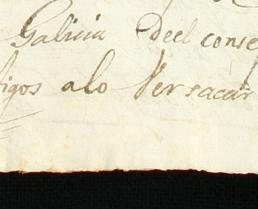 Galicia Deel conse
tigos alo Versacar